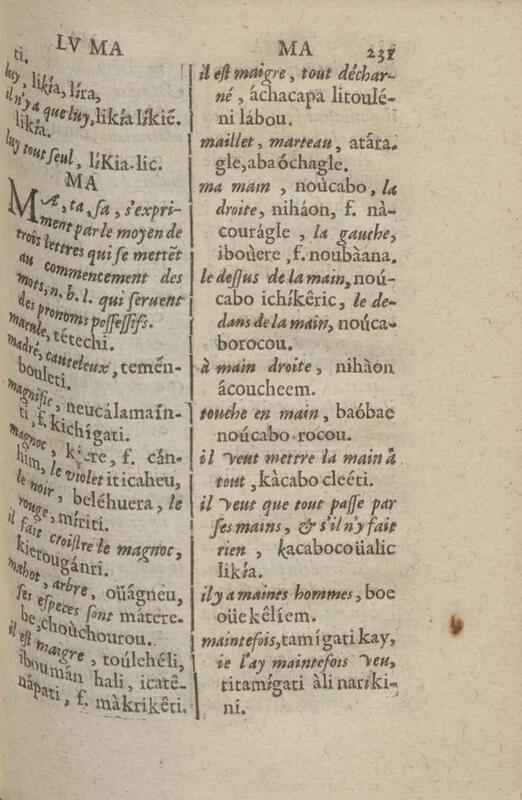 LV MA
ti.
luy, likía, líra,
il n'y a que luy, likía líkië.
likía.
luy tout seul, liKia-lic.
MA
MA, ta, sa, s'expri-
ment par le moyen de
trois lettres qui se mettẽt
au commencement des
mots, n. b. l. qui seruent
des pronoms possessifs.
macule, tétechi.
madré, cauteleux, temén-
bouleti.
magnific, neucálamaín-
ti, f. kichígati.
magnoc, f. cán-
him, le violet iticaheu,
le noir, beléhuera, le
rouge, míriti.
il fait croistre le magnoc,
kierougánri.
mahot, arbre, oüágneu,
ses especes sont màtere.
be, choùchourou.
il est maigre, toúlchéli,
iboumân hali, icatê-
nápati, f. màkrikêti.
MA 231
il est maigre, tout déchar-
né, áchacapa litoulé-
ni lábou.
maillet, marteau, atára.
gle, abaóchagle.
ma main, noúcabo, la
droite, niháon, f. nà-
courágle, la gauche,
iboùere, f. noubàana.
le dessus de la main, noú-
cabo ichíkêric, le de-
dans de la main, noúca-
borocou.
à main droite, nihàon
ácoucheem.
touche en main, baóbae
noúcabo-rocou.
il veut mettre la main à
tout, kàcabo cleéti.
il veut que tout passe par
ses mains, & s'il n'y fait
rien, kacabocoüalic
likía.
il y a maints hommes, boe
oüe kêlíem.
maintefois, tamígati kay,
ie l'ay maintefois veu,
titamígati àli nariki-
ni.